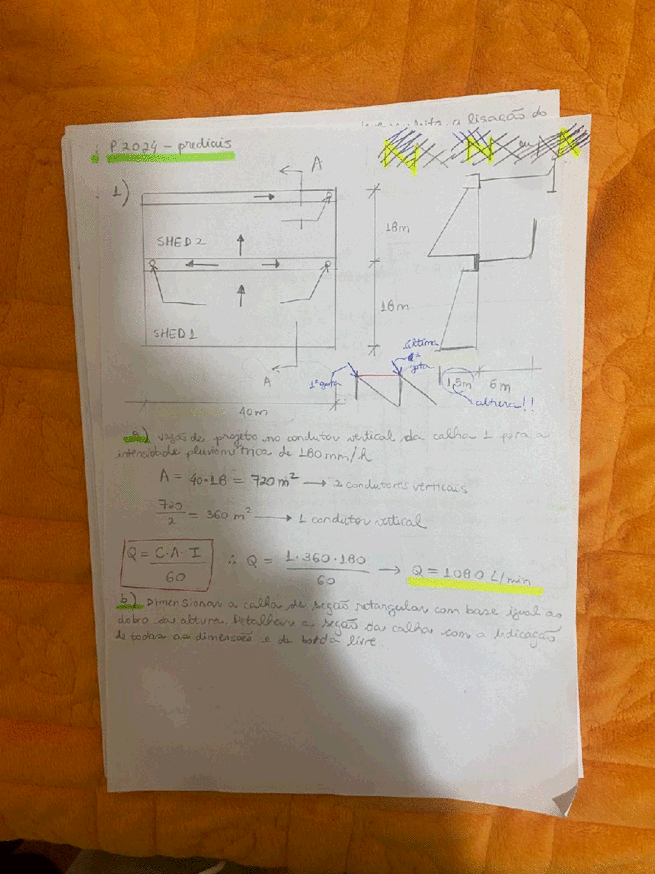 P2024 - prediais
1)
A
SHED 2
18m
SHED 1
18m
A
40m
1ª gota
última
gota
1,5m
6m
altura!!
a) vazão de projeto no condutor vertical da calha 1 para a
intensidade pluviométrica de 180 mm/h
A = 40·18 = 720 m² → 2 condutores verticais
720/2 = 360 m² → 1 condutor vertical
Q = C·A·I/60 ∴ Q = 1·360·180/60 → Q = 1080 L/min
b) Dimensionar a calha de seção retangular com base igual ao
dobro da altura. Detalhar a seção da calha com a indicação
de todas as dimensões e de borda livre.